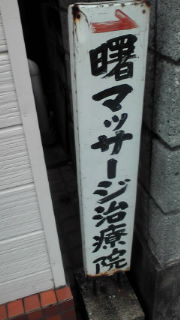 曙マッサージ治療院